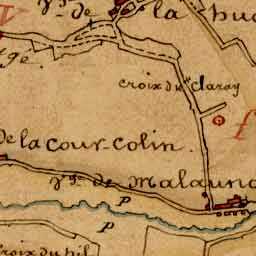 de la hu
ge.
croix du claray
f
de la cour-colin.
de malauna
p
p
croix du hil